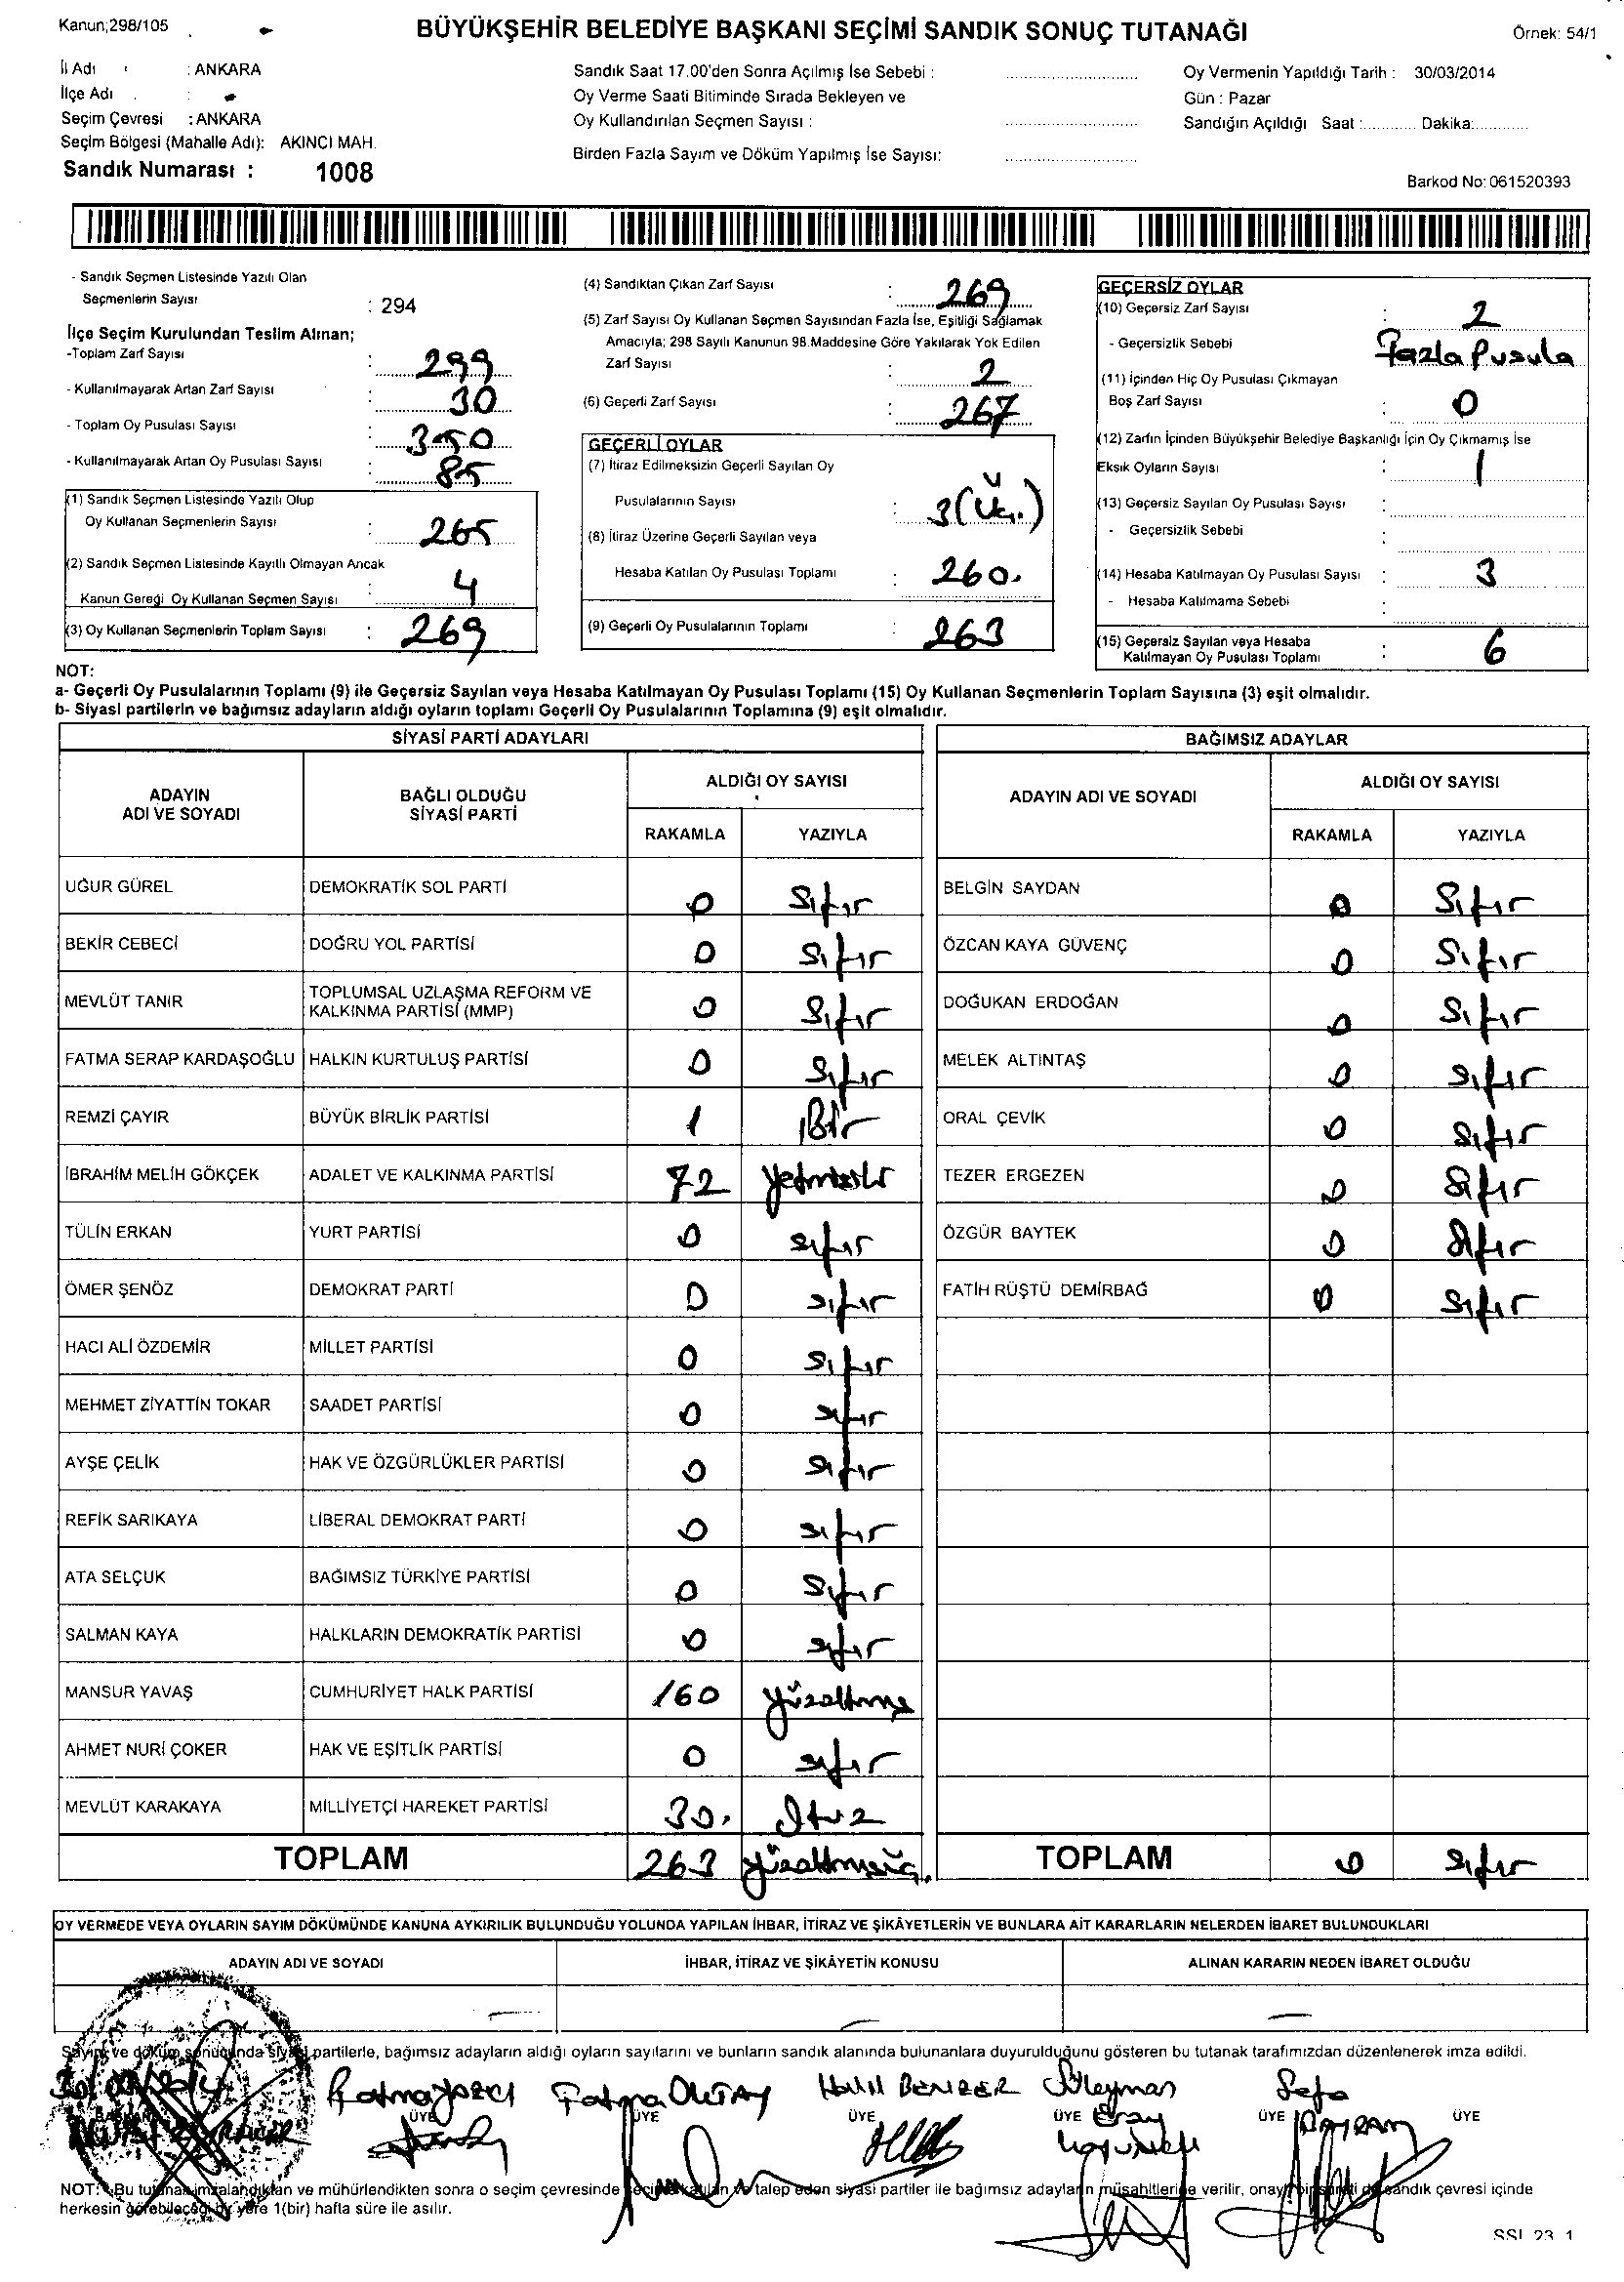 Kanun;298/105
BÜYÜKŞEHİR BELEDİYE BAŞKANI SEÇİMİ SANDIK SONUÇ TUTANAĞI
Örnek: 54/1
İl Adı : ANKARA
İlçe Adı :
Seçim Çevresi : ANKARA
Seçim Bölgesi (Mahalle Adı): AKINCI MAH.
Sandık Numarası : 1008
Sandık Saat 17.00'den Sonra Açılmış İse Sebebi :
Oy Verme Saati Bitiminde Sırada Bekleyen ve
Oy Kullandırılan Seçmen Sayısı :
Birden Fazla Sayım ve Döküm Yapılmış İse Sayısı:
Oy Vermenin Yapıldığı Tarih : 30/03/2014
Gün : Pazar
Sandığın Açıldığı Saat :............ Dakika:............
Barkod No: 061520393
- Sandık Seçmen Listesinde Yazılı Olan
Seçmenlerin Sayısı : 294
İlçe Seçim Kurulundan Teslim Alınan;
-Toplam Zarf Sayısı : 299
- Kullanılmayarak Artan Zarf Sayısı : 30
- Toplam Oy Pusulası Sayısı : 350
- Kullanılmayarak Artan Oy Pusulası Sayısı : 85
(1) Sandık Seçmen Listesinde Yazılı Olup
Oy Kullanan Seçmenlerin Sayısı : 265
(2) Sandık Seçmen Listesinde Kayıtlı Olmayan Ancak
Kanun Gereği Oy Kullanan Seçmen Sayısı : 4
(3) Oy Kullanan Seçmenlerin Toplam Sayısı : 269
(4) Sandıktan Çıkan Zarf Sayısı : 269
(5) Zarf Sayısı Oy Kullanan Seçmen Sayısından Fazla İse, Eşitliği Sağlamak
Amacıyla; 298 Sayılı Kanunun 98.Maddesine Göre Yakılarak Yok Edilen
Zarf Sayısı : 2
(6) Geçerli Zarf Sayısı : 267
GEÇERLİ OYLAR
(7) İtiraz Edilmeksizin Geçerli Sayılan Oy
Pusulalarının Sayısı : 3 (Üç.)
(8) İtiraz Üzerine Geçerli Sayılan veya
Hesaba Katılan Oy Pusulası Toplamı : 260.
(9) Geçerli Oy Pusulalarının Toplamı : 263
GEÇERSİZ OYLAR
(10) Geçersiz Zarf Sayısı : 2
- Geçersizlik Sebebi : Fazla Pusula
(11) İçinden Hiç Oy Pusulası Çıkmayan
Boş Zarf Sayısı : 0
(12) Zarfın İçinden Büyükşehir Belediye Başkanlığı İçin Oy Çıkmamış İse
Eksik Oyların Sayısı : 1
(13) Geçersiz Sayılan Oy Pusulası Sayısı :
- Geçersizlik Sebebi :
(14) Hesaba Katılmayan Oy Pusulası Sayısı : 3
- Hesaba Katılmama Sebebi :
(15) Geçersiz Sayılan veya Hesaba
Katılmayan Oy Pusulası Toplamı : 6
NOT:
a- Geçerli Oy Pusulalarının Toplamı (9) ile Geçersiz Sayılan veya Hesaba Katılmayan Oy Pusulası Toplamı (15) Oy Kullanan Seçmenlerin Toplam Sayısına (3) eşit olmalıdır.
b- Siyasi partilerin ve bağımsız adayların aldığı oyların toplamı Geçerli Oy Pusulalarının Toplamına (9) eşit olmalıdır.
SİYASİ PARTİ ADAYLARI
ADAYIN ADI VE SOYADI
BAĞLI OLDUĞU SİYASİ PARTİ
ALDIĞI OY SAYISI
RAKAMLA YAZIYLA
UĞUR GÜREL DEMOKRATİK SOL PARTİ 0 Sıfır
BEKİR CEBECİ DOĞRU YOL PARTİSİ 0 Sıfır
MEVLÜT TANIR TOPLUMSAL UZLAŞMA REFORM VE KALKINMA PARTİSİ (MMP) 0 Sıfır
FATMA SERAP KARDAŞOĞLU HALKIN KURTULUŞ PARTİSİ 0 Sıfır
REMZİ ÇAYIR BÜYÜK BİRLİK PARTİSİ 1 Bir
İBRAHİM MELİH GÖKÇEK ADALET VE KALKINMA PARTİSİ 72 Yetmişiki
TÜLİN ERKAN YURT PARTİSİ 0 sıfır
ÖMER ŞENÖZ DEMOKRAT PARTİ 0 sıfır
HACI ALİ ÖZDEMİR MİLLET PARTİSİ 0 sıfır
MEHMET ZİYATTİN TOKAR SAADET PARTİSİ 0 sıfır
AYŞE ÇELİK HAK VE ÖZGÜRLÜKLER PARTİSİ 0 sıfır
REFİK SARIKAYA LİBERAL DEMOKRAT PARTİ 0 sıfır
ATA SELÇUK BAĞIMSIZ TÜRKİYE PARTİSİ 0 sıfır
SALMAN KAYA HALKLARIN DEMOKRATİK PARTİSİ 0 sıfır
MANSUR YAVAŞ CUMHURİYET HALK PARTİSİ 160 yüzaltmış
AHMET NURİ ÇOKER HAK VE EŞİTLİK PARTİSİ 0 sıfır
MEVLÜT KARAKAYA MİLLİYETÇİ HAREKET PARTİSİ 30. Otuz
TOPLAM 263
BAĞIMSIZ ADAYLAR
ADAYIN ADI VE SOYADI
ALDIĞI OY SAYISI
RAKAMLA YAZIYLA
BELGİN SAYDAN 0 Sıfır
ÖZCAN KAYA GÜVENÇ 0 Sıfır
DOĞUKAN ERDOĞAN 0 Sıfır
MELEK ALTINTAŞ 0 sıfır
ORAL ÇEVİK 0 sıfır
TEZER ERGEZEN 0 Sıfır
ÖZGÜR BAYTEK 0 Sıfır
FATİH RÜŞTÜ DEMİRBAĞ 0 Sıfır
TOPLAM 0 sıfır
OY VERMEDE VEYA OYLARIN SAYIM DÖKÜMÜNDE KANUNA AYKIRILIK BULUNDUĞU YOLUNDA YAPILAN İHBAR, İTİRAZ VE ŞİKÂYETLERİN VE BUNLARA AİT KARARLARIN NELERDEN İBARET BULUNDUKLARI
ADAYIN ADI VE SOYADI
İHBAR, İTİRAZ VE ŞİKÂYETİN KONUSU
ALINAN KARARIN NEDEN İBARET OLDUĞU
Sayım ve döküm sonucunda siyasi partilerle, bağımsız adayların aldığı oyların sayılarını ve bunların sandık alanında bulunanlara duyurulduğunu gösteren bu tutanak tarafımızdan düzenlenerek imza edildi.
Fatma Yazıcı Fatma OLTAY Halil BENZER Süleyman Eray Sefa BAYRAM
BAŞKAN ÜYE ÜYE ÜYE ÜYE ÜYE ÜYE
NOT: Bu tutanak imzalandıktan ve mühürlendikten sonra o seçim çevresinde seçime katılan ve talep eden siyasi partiler ile bağımsız adayların müşahitlerine verilir, onaylı bir sureti de sandık çevresi içinde
herkesin görebileceği bir yere 1(bir) hafta süre ile asılır.